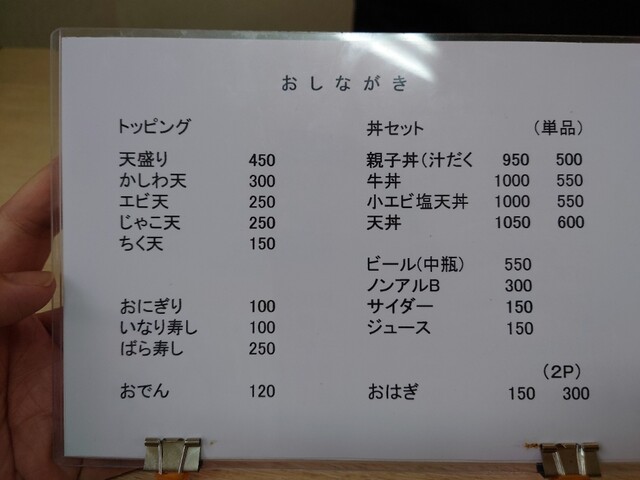 おしながき
トッピング
天盛り 450
かしわ天 300
エビ天 250
じゃこ天 250
ちく天 150
おにぎり 100
いなり寿し 100
ばら寿し 250
おでん 120
丼セット （単品）
親子丼（汁だく 950 500
牛丼 1000 550
小エビ塩天丼 1000 550
天丼 1050 600
ビール（中瓶） 550
ノンアルB 300
サイダー 150
ジュース 150
（2P）
おはぎ 150 300